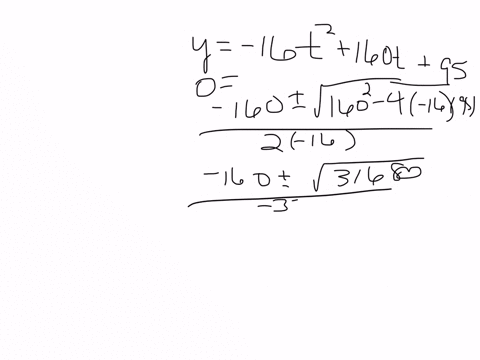 y = -16t² + 160t + 95
0 =
-160 ± √160² - 4(-16)(95)
2(-16)
-160 ± √31680
-3